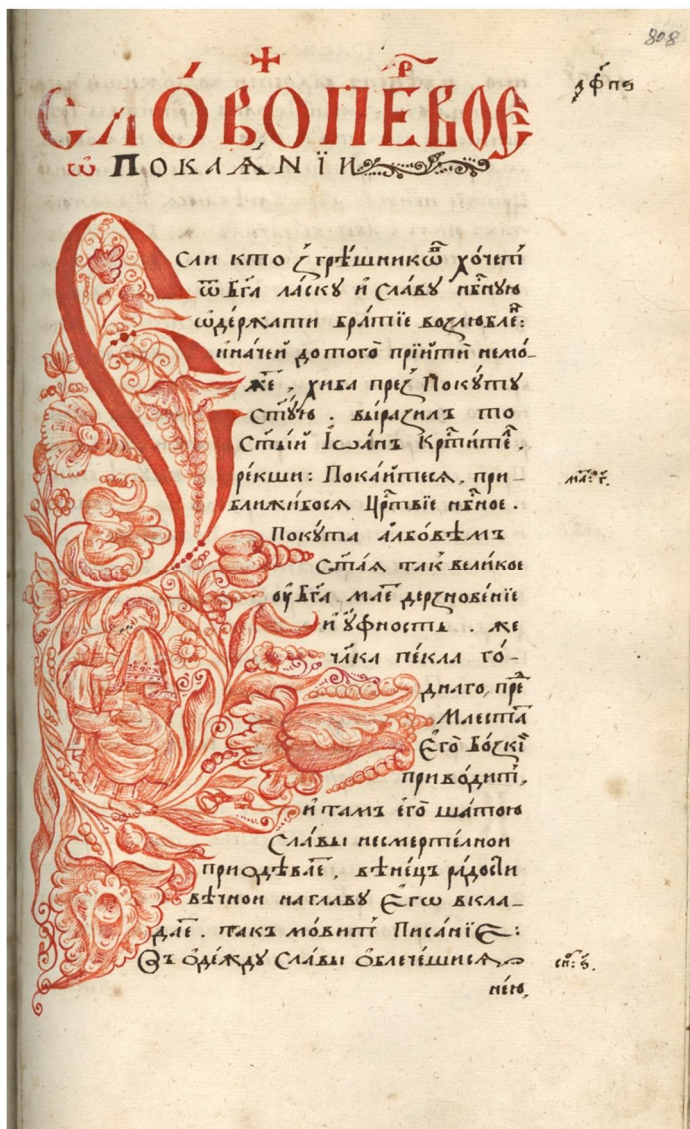 808
СЛО́ВО ПЕ́РВОЕ
ѡ ПОКАѦ́НЇИ
Если кто з̾ грѣ́шникѡ́в хо́четъ
ѿ Бг҃а ла́ску и҆ сла́ву нб҃ную
ѡ҆де́ржати бра́тїе возлю́блен:
и҆на́чей до того̀ прїи́ти немо-
же, хиба през̾ Поку́ту
ст҃у́ю. вы́разилъ то
ст҃ы́й Іѡа́нъ Крⷭ҇ти́тель,
ре́кши: Пока́йтеся, при-
бли́жибося Црⷭ҇твїе нб҃ное.
Поку́та а҆лбо́вѣмъ
ст҃а́я такъ вели́кое
оу҆ Бг҃а мае дерзнове́нїе
и҆ у҆́фность. же
чл҃ка пе́кла го́-
днаго, пред
Маеста́т
Е҆го̀ Бо́зкїй
приво́дитъ,
и҆ тамъ е҆го̀ ша́тою
Сла́вы несме́ртелнои
приѡдѣвае, вѣне́цъ ра́дости
вѣ́чнои на главу Е҆гѡ вкла-
дае. такъ мо́витъ Писа́нїЕ:
Въ ѻ҆де́жду Сла́вы ѻ҆блече́шися
не́ю,